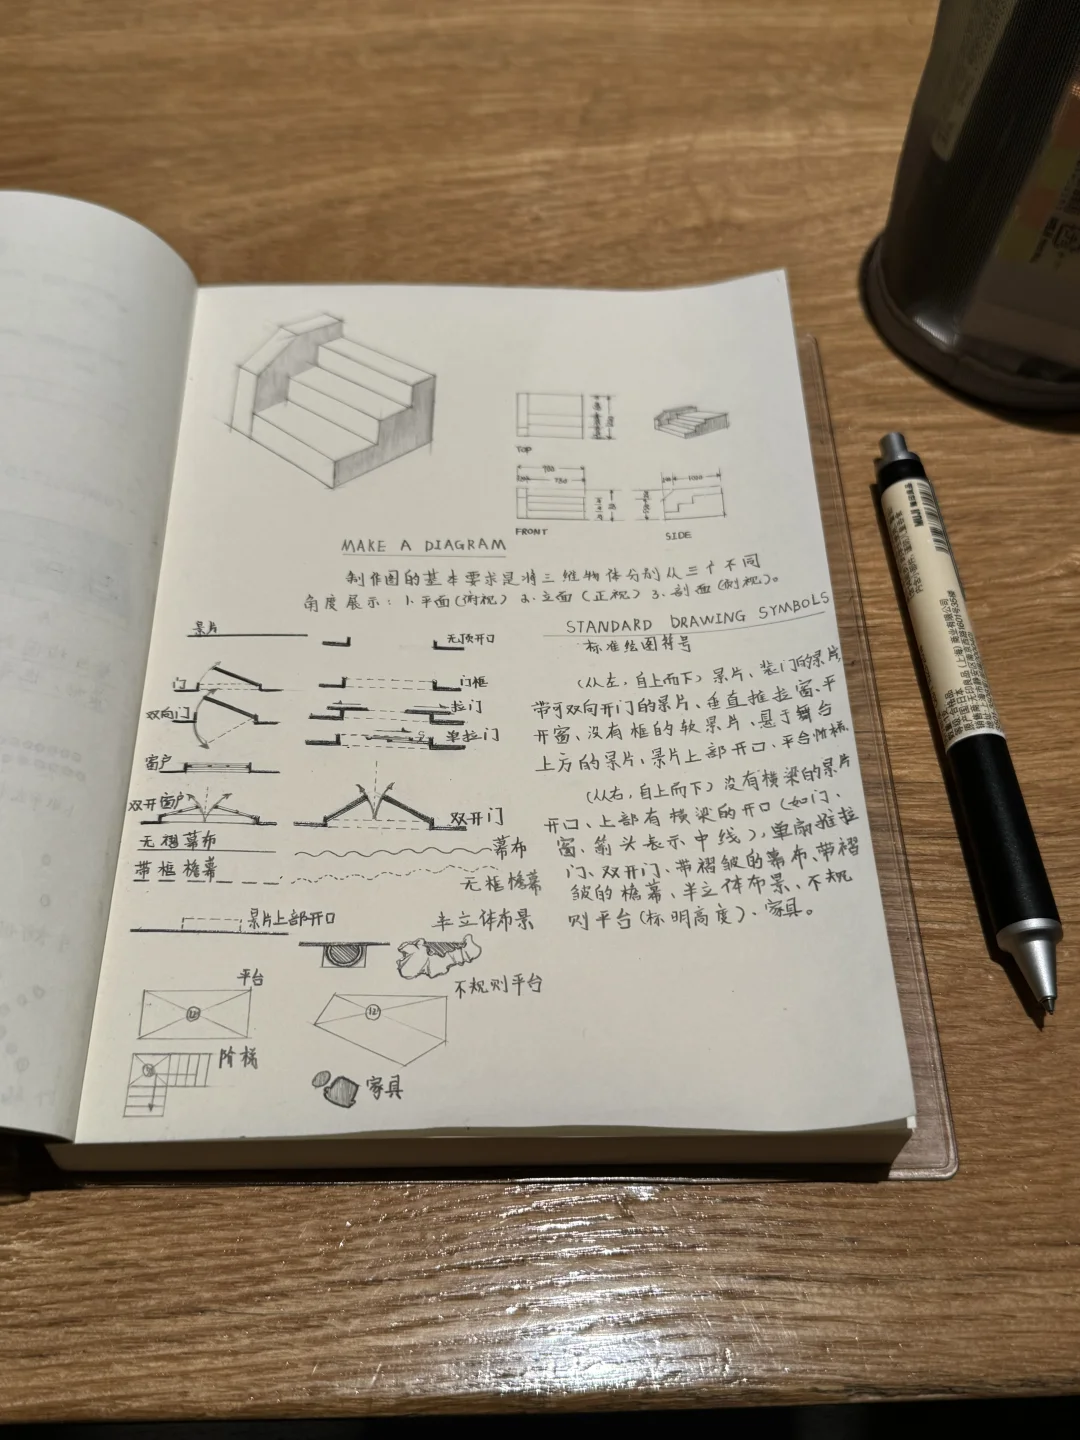 TOP
FRONT
SIDE
MAKE A DIAGRAM
制作图的基本要求是将三维物体分别从三个不同
角度展示：1.平面(俯视) 2.立面(正视) 3.剖面(侧视)。
STANDARD DRAWING SYMBOLS
标准绘图符号
景片
无顶开口
门
门框
双向门
拉门
单拉门
窗户
双开窗户
双开门
无褶幕布
幕布
带框檐幕
无框檐幕
景片上部开口
半立体布景
平台
不规则平台
阶梯
家具
(从左，自上而下)景片、装门的景片
带可双向开门的景片、垂直推拉窗、平
开窗、没有框的软景片、悬于舞台
上方的景片、景片上部开口、平台阶梯、
(从右，自上而下)没有横梁的景片
开口、上部有横梁的开口(如门、
窗、箭头表示中线)，单扇推拉
门、双开门、带褶皱的幕布、带褶
皱的檐幕、半立体布景、不规
则平台(标明高度)、家具。